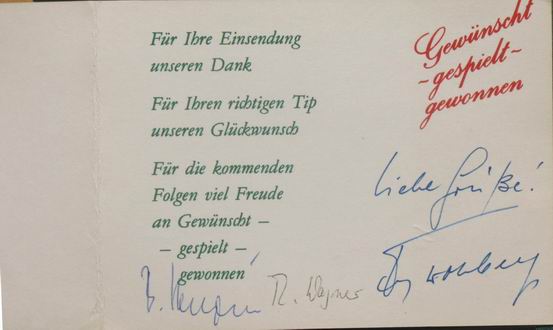 Für Ihre Einsendung
unseren Dank
Für Ihren richtigen Tip
unseren Glückwunsch
Für die kommenden
Folgen viel Freude
an Gewünscht –
– gespielt –
gewonnen
Gewünscht
- gespielt -
gewonnen
Liebe Grüße!
R. Wagner